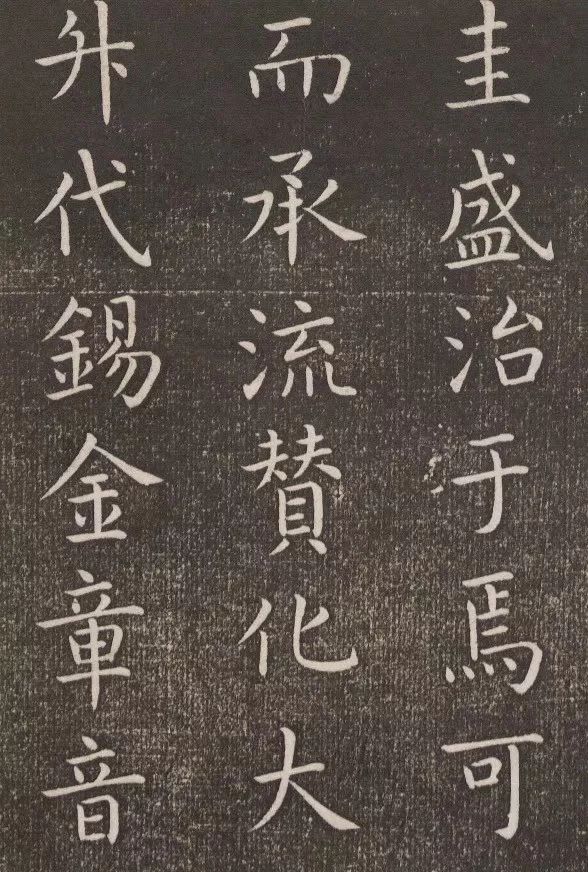 圭盛治于焉可
而承流赞化大
升代錫金章音